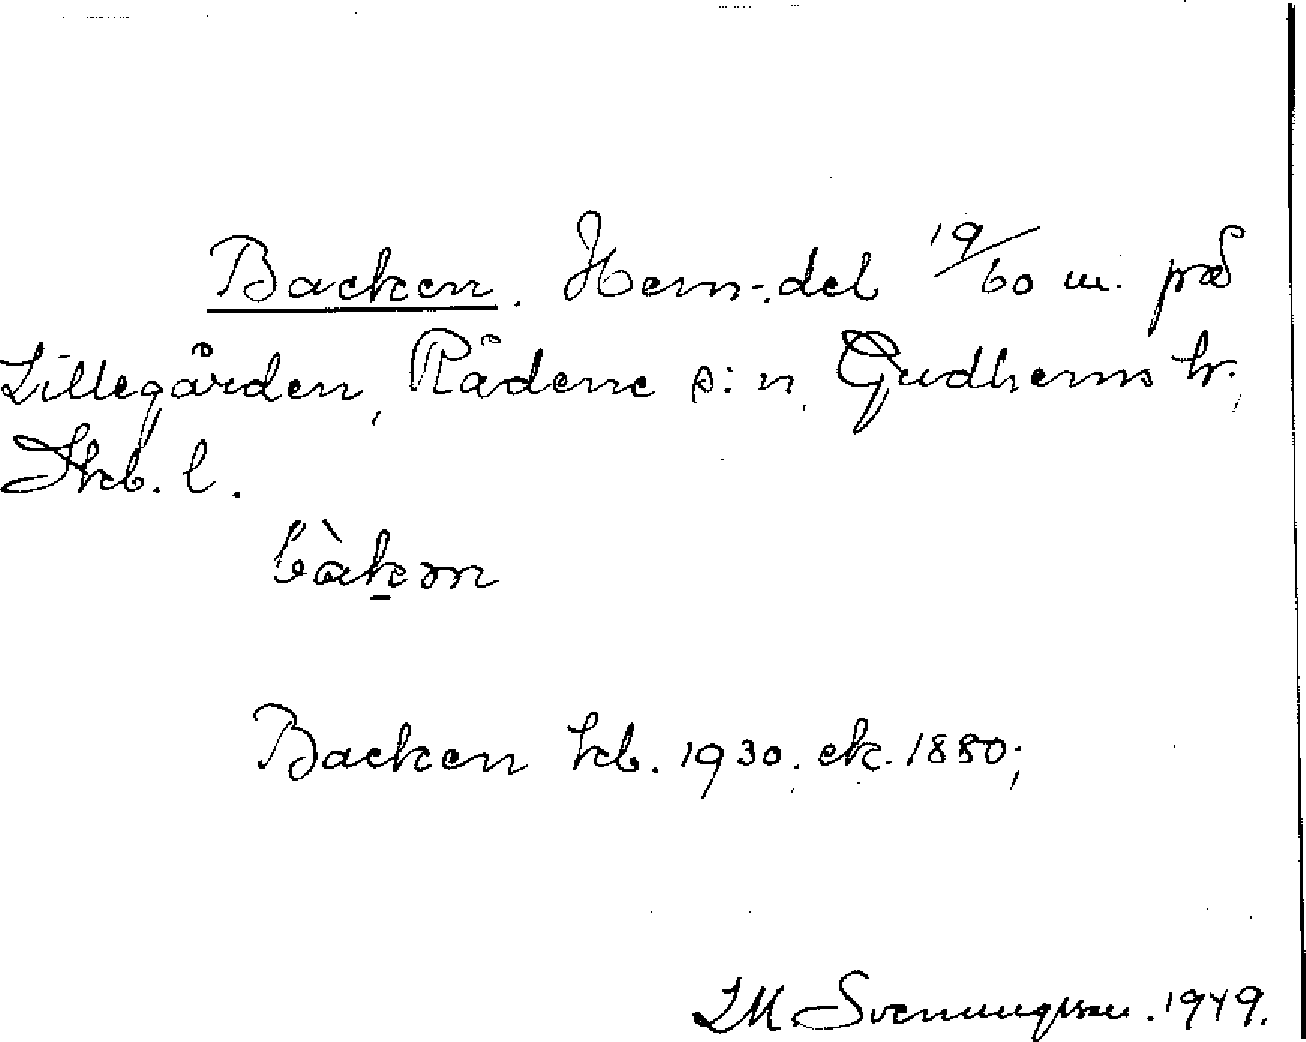 Backen. Hem.-del 19/60 m. på
Lillegården, Rådene s:n, Gudhems hr.,
Skb. l.
bàkən
Backen kb. 1930. ek. 1880;
I M Svenungsson. 1949.